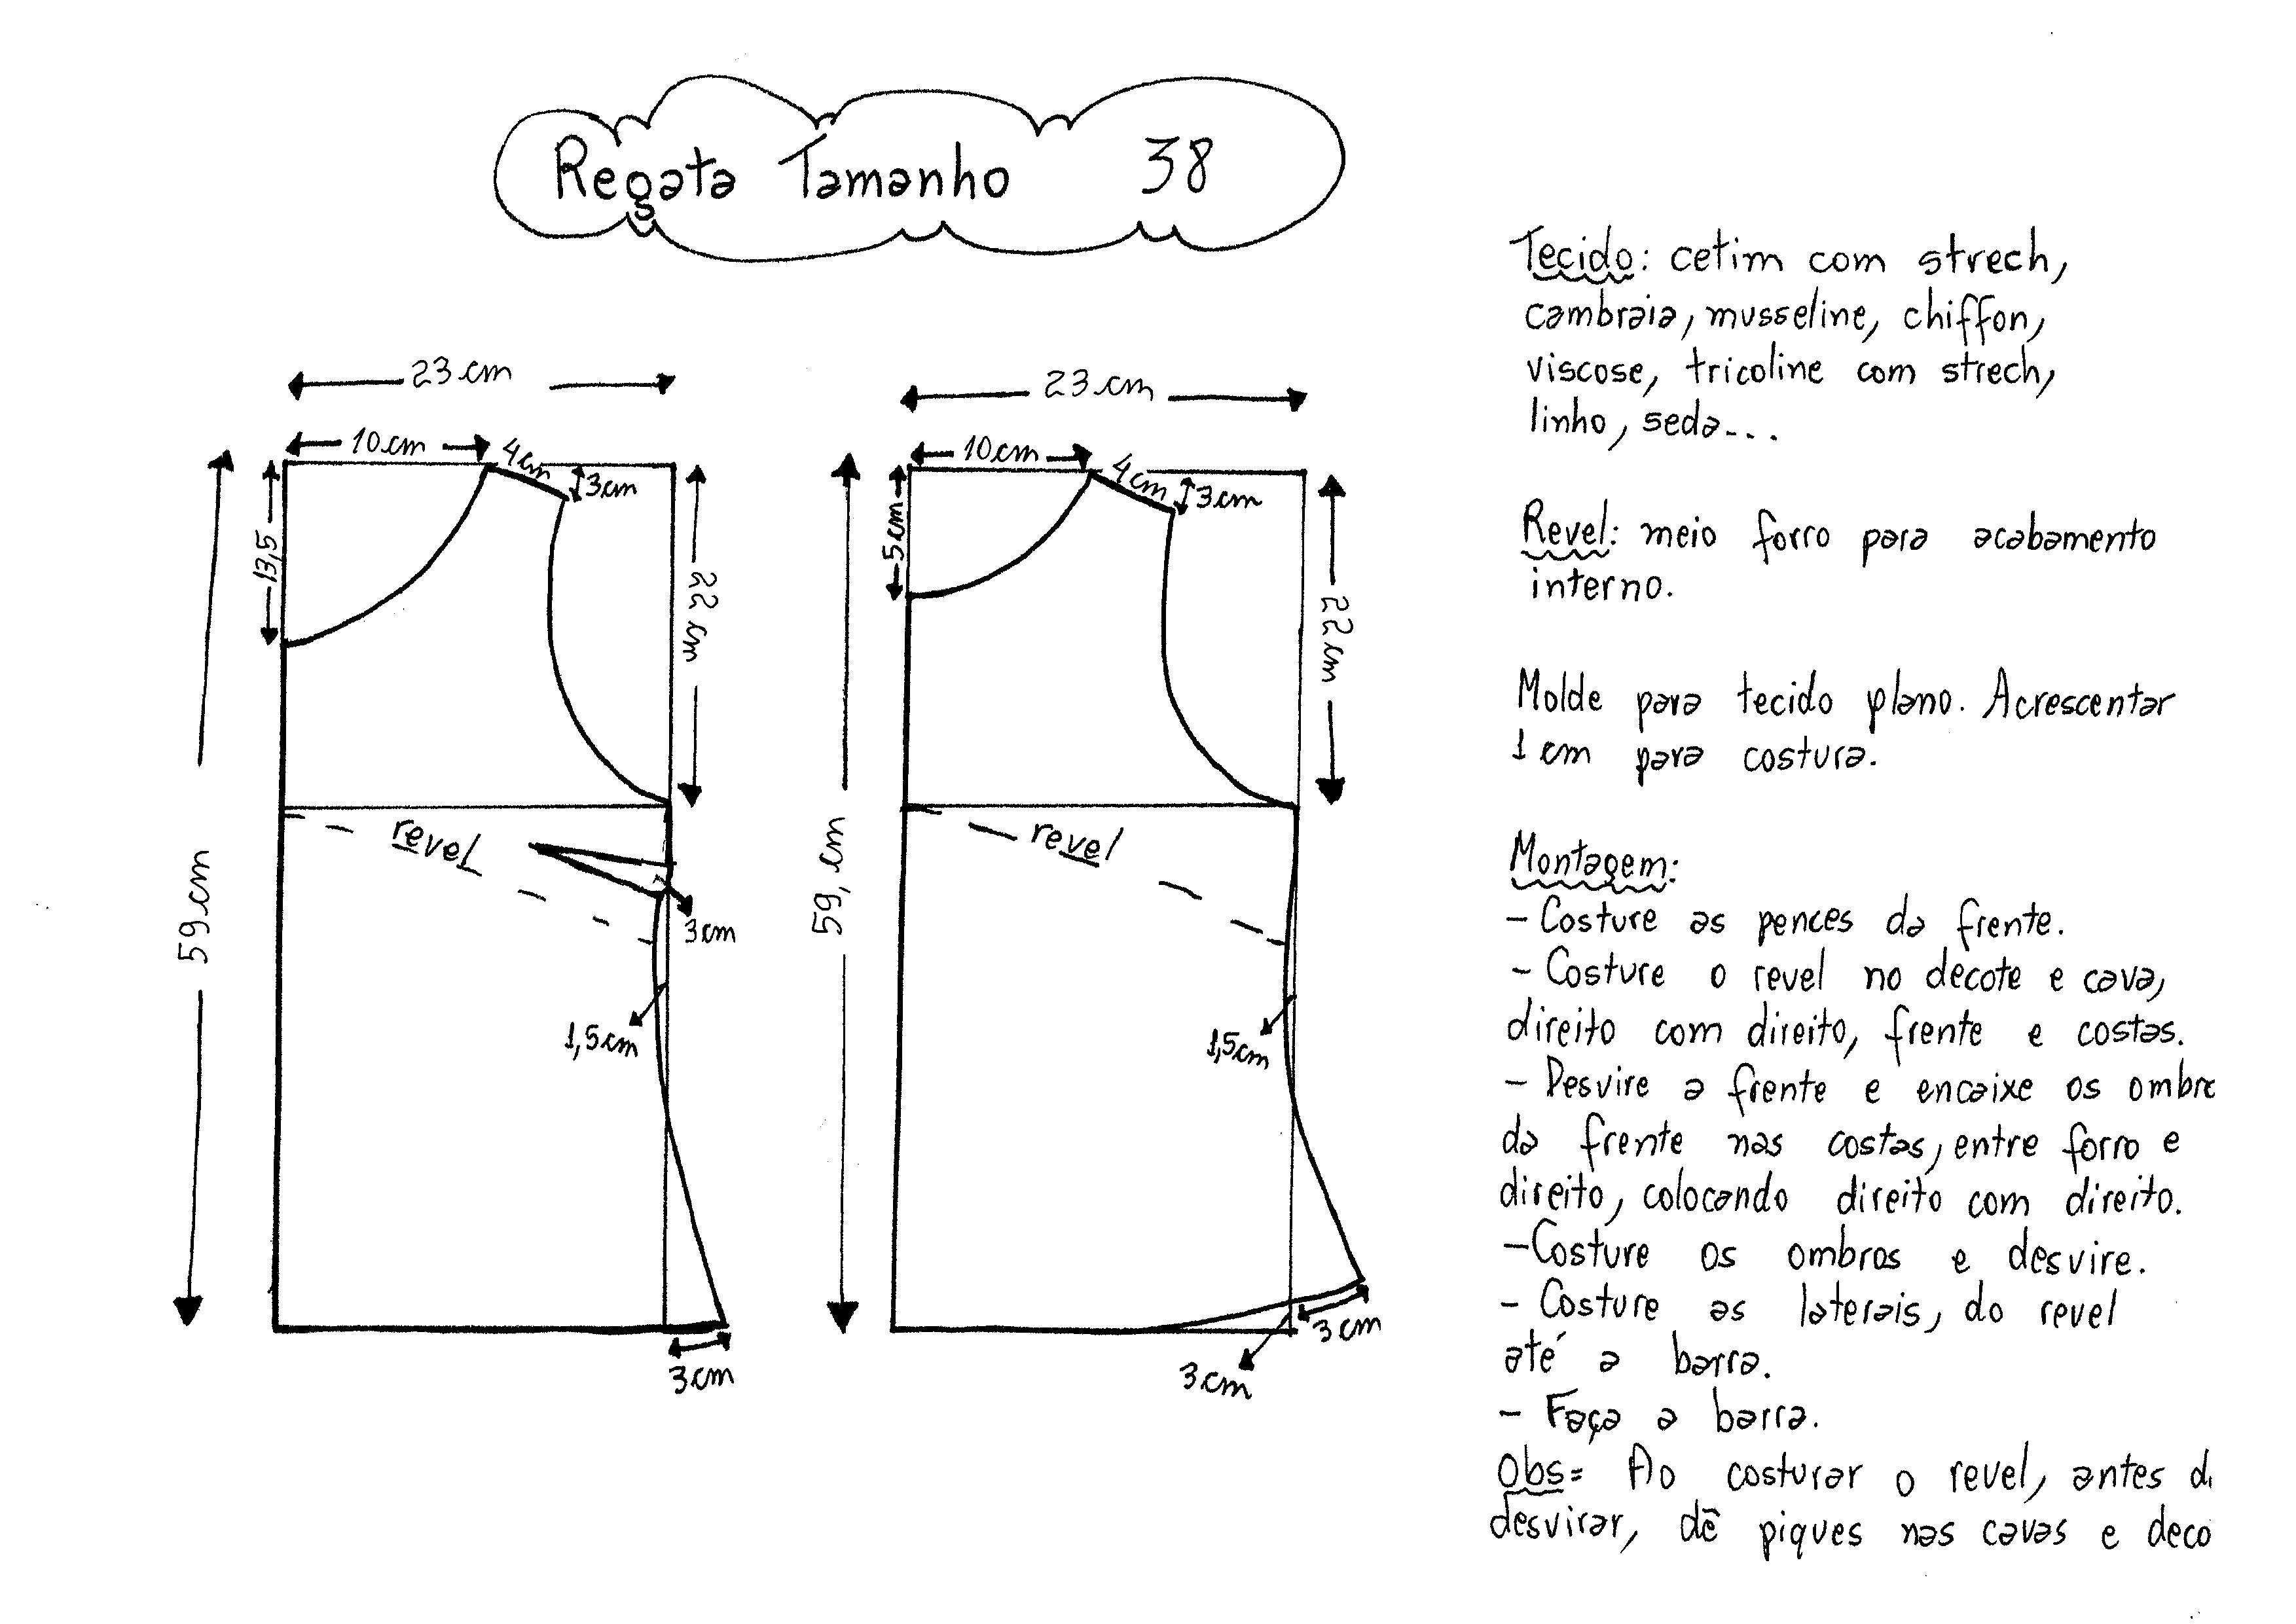 Regata Tamanho 38
23 cm
10 cm
4cm
3cm
13,5
22 cm
59 cm
revel
3cm
1,5cm
3cm
23 cm
10 cm
4cm
3cm
5cm
22 cm
59, cm
revel
1,5cm
3cm
3cm
Tecido: cetim com strech,
cambraia, musseline, chiffon,
viscose, tricoline com strech,
linho, seda...
Revel: meio forro para acabamento
interno.
Molde para tecido plano. Acrescentar
1 cm para costura.
Montagem:
- Costure as pences da frente.
- Costure o revel no decote e cava,
direito com direito, frente e costas.
- Desvire a frente e encaixe os
da frente nas costas, entre forro e
direito, colocando direito com direito.
- Costure os ombros e desvire.
- Costure as laterais, do revel
até a barra.
- Faça a barra.
Obs= Ao costurar o revel, antes
desvirar, dê piques nas cavas e deco